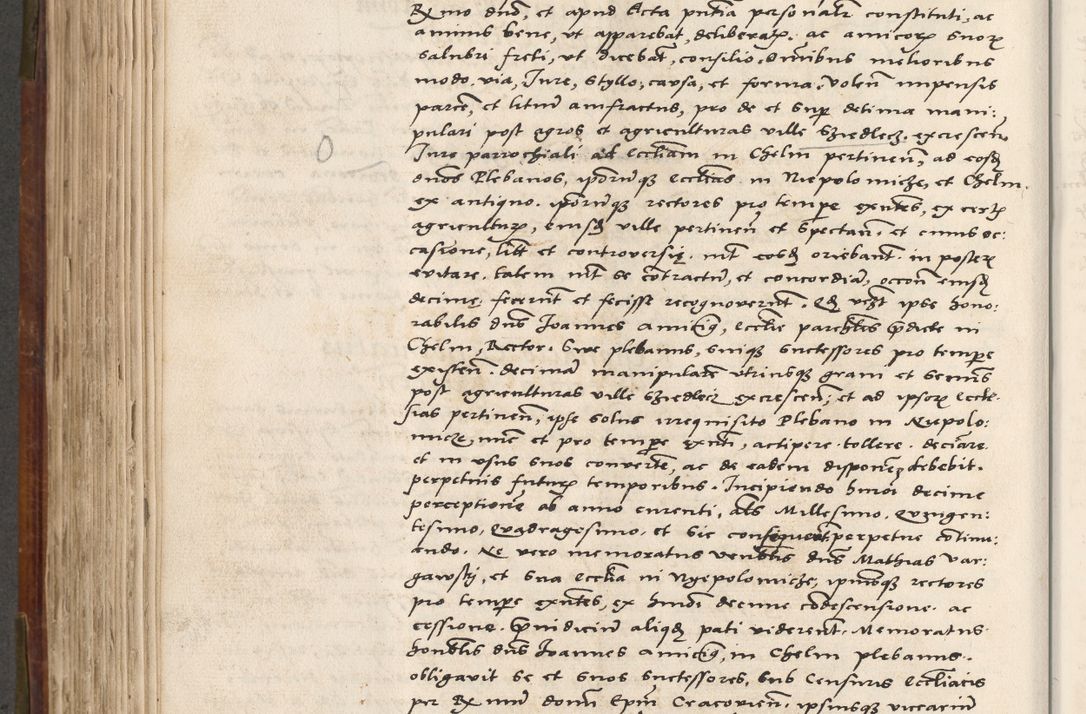 Rx mo dno, et apud Acta pntia personalr constituti, ac
animis bene, ut apparebat, deliberatx. ac amicorx suorx
salubri freti, ut dicebat, consilio. Omibus melioribus
modo. via, Jure, Styllo, causa, et forma, Volen impensis
parce, et litiu amfractus, pro de et Sup detima mani:
pulari post agros et agriculturas ville Sziedlecz, excrescen
Jure parrochiali ad eccliam in Chelm pertinen, ad eosd
dnos Plebanos, ipborumq eccliars in Niepolomicze, et Chelm.
ex antiquo. ipborumq rectores pro tempe exntes, ex certx
agriculturx, eiusd ville pertinen et spectan. et cuius oc:
casione, lites et controversię. int eosd oriebant. in posterx
evitare. talem int se contractu, et concordia, occon eiusd
decime, fecerunt et fecisse recognoverunt. Qd videlzt ipse hono:
rabilis dns Joannes Amiciq, ecclie parchlis pdicte in
Chelm, Rector. Sive plebanus, suiq successores pro tempe
existen. decima manipulare utriusq grani et seminis
post agriculturas ville Sziedlecz excrescen, et ad ipsorx eccle:
sias pertinen, ipse solus irrequisito Plebano in Niepolo:
micze, nunc et pro tempe exnti, accipere. tollere. deciare.
et in usus suos converte, ac de eadem disponez debebit.
perpetuis futurx temporibus. Incipiendo hmoi decime
perceptione ab anno currenti, als Millesimo. Quigen:
tesimo, Quadragesimo. et sic consequent perpetue contiu:
ando. Ne vero memoratus venblis dns Mathias Var:
gawsky, et sua ecclia in Nyepolomicze, ipiusq rectores
pro tempe exntes, ex hmoi decime condescensione. ac
cessione. Preiudiciu aliqd pati viderent. Memoratus
honblis dns Joannes Amiciq, in Chelm plebanus.
obligavit se et suos successores, sub Censuris eccliacis
per Rx mu domn Epm Cracovien. ipsiusq vicariu